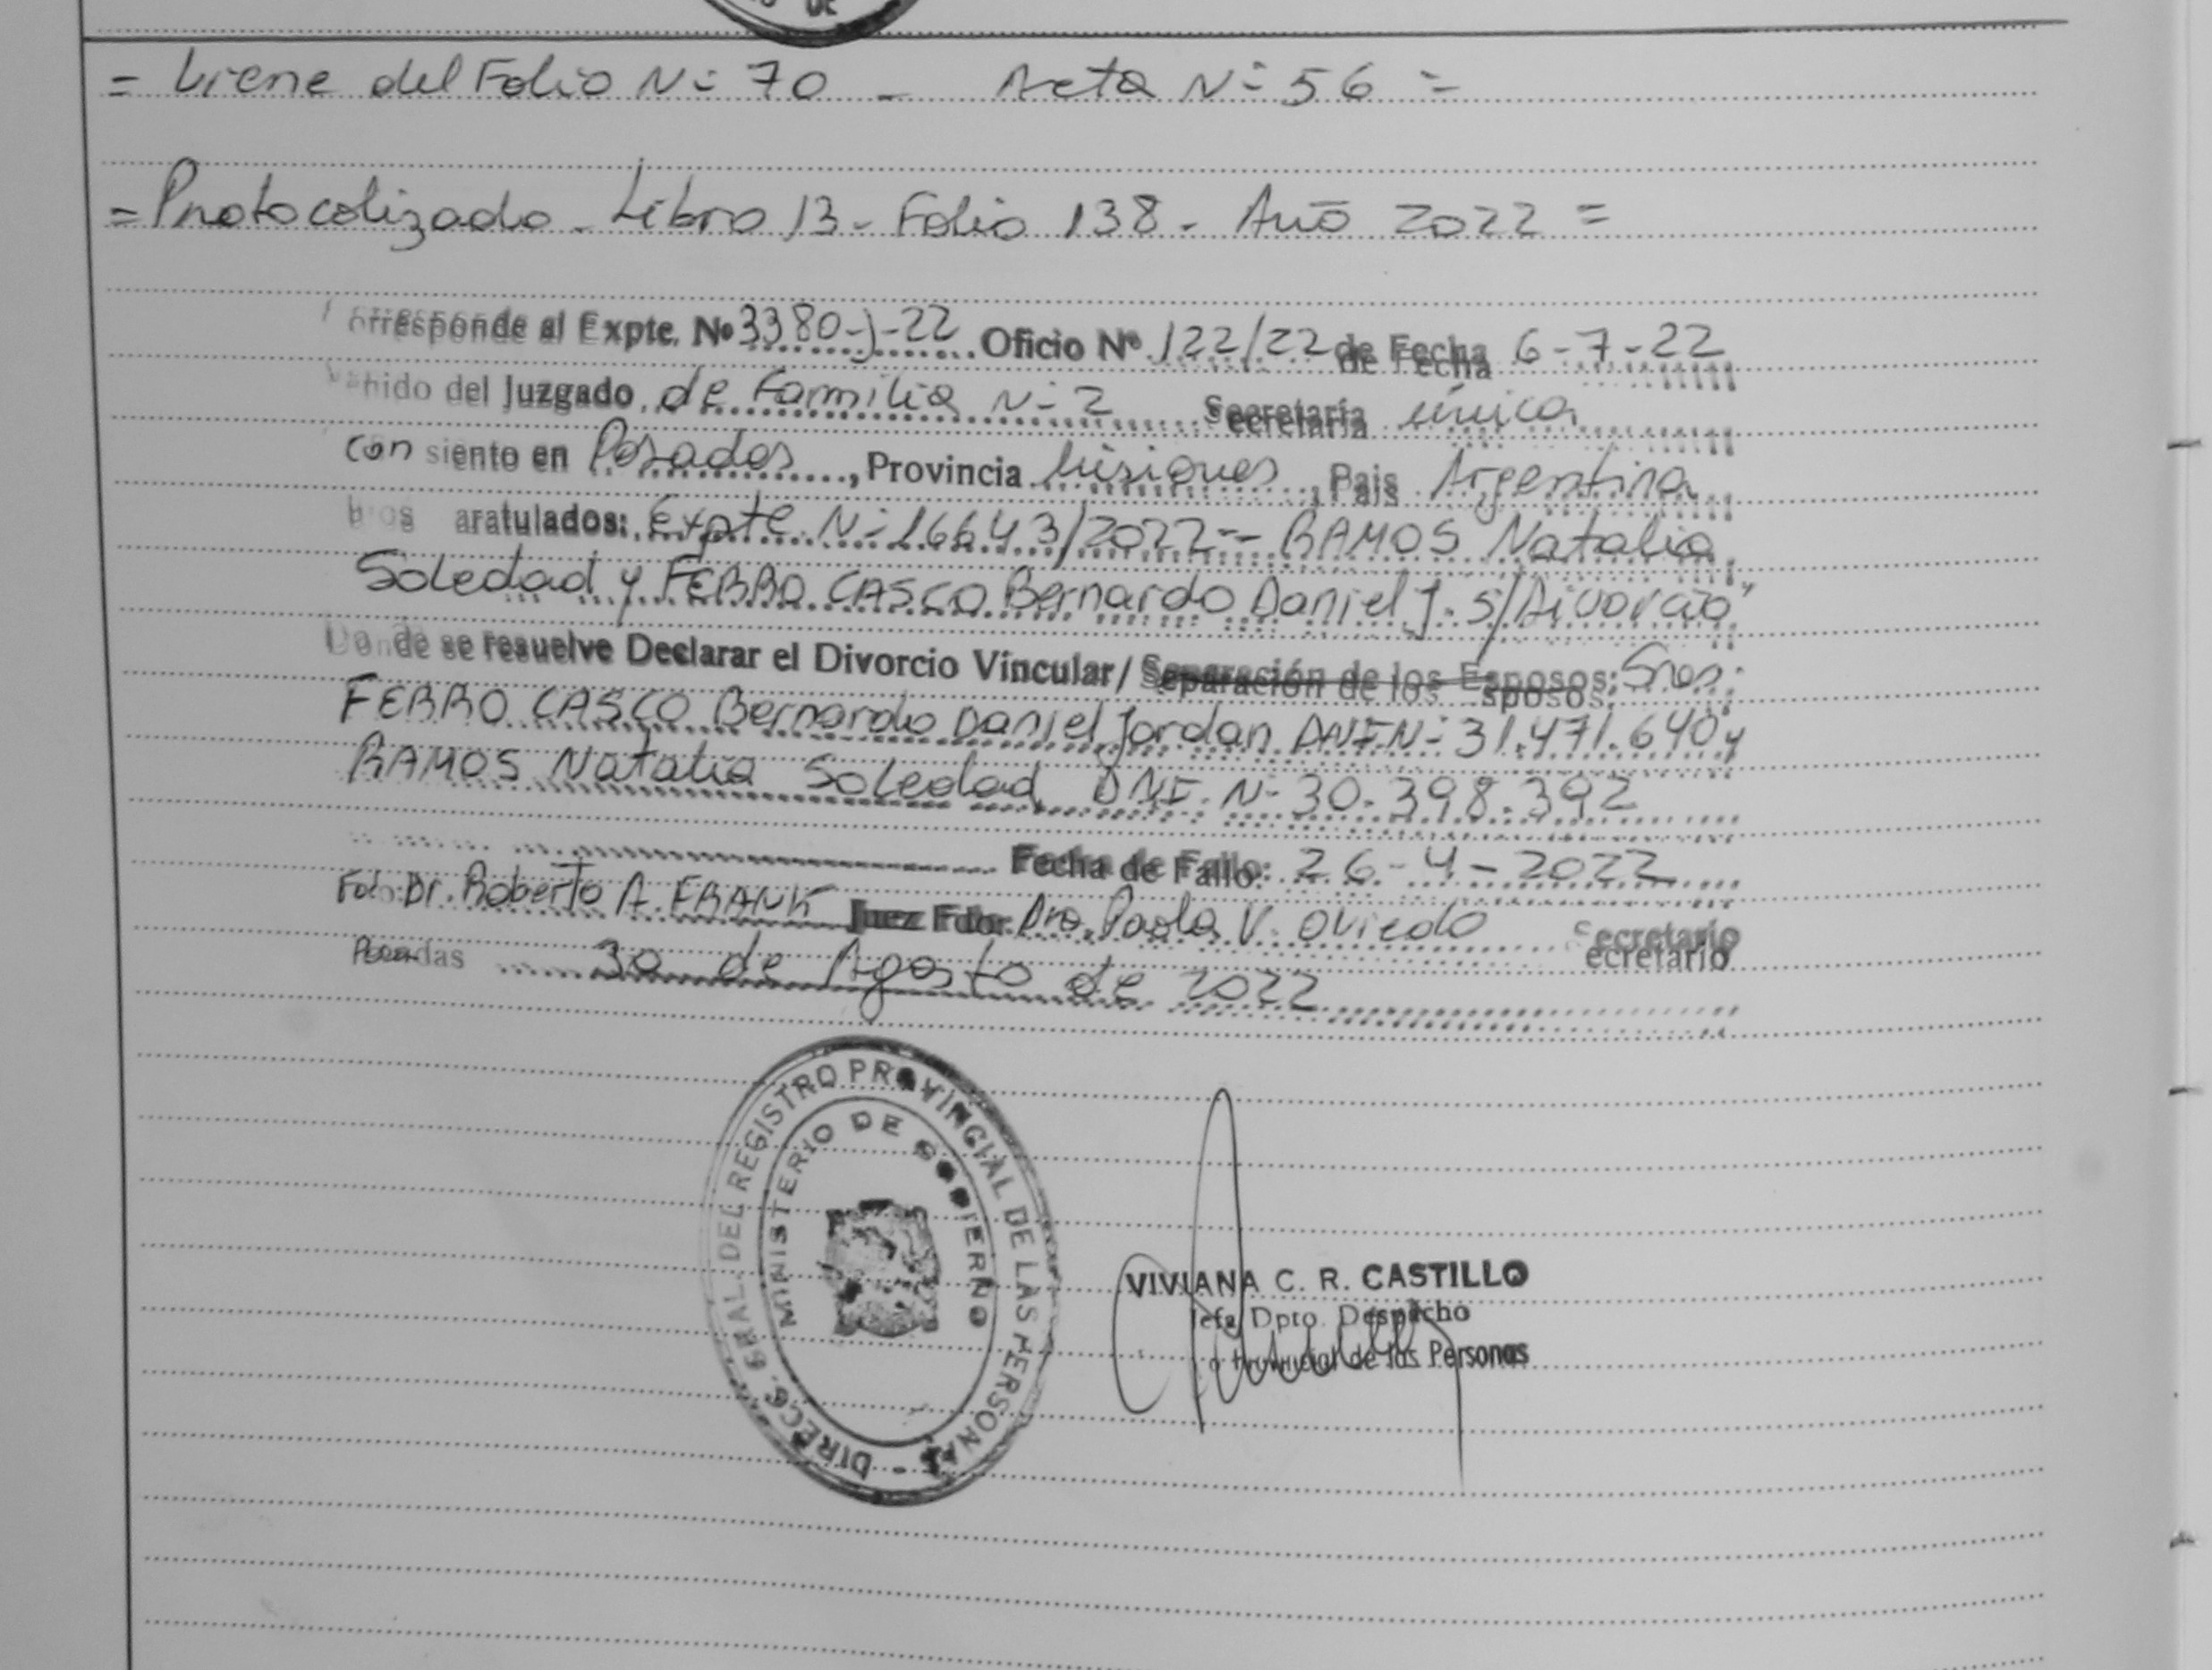 = Viene del Folio N: 70 - Acta N: 56 =
= Protocolizado - Libro 13 - Folio 138 - Año 2022 =
orresponde al Expte. Nº 3380-J-22 Oficio Nº 122/22 de Fecha 6-7-22
nido del Juzgado de Familia N: 2 Secretaría única
con siento en Posadas, Provincia Misiones, Pais Argentina
aratulados: Expte N: 16643/2022 - RAMOS Natalia
Soledad y FERRO CASCO Bernardo Daniel J. S/Divorcio"
Donde se resuelve Declarar el Divorcio Vincular/ Separación de los Esposos: Sres.
FERRO CASCO Bernardo Daniel Jordan DNI N: 31.471.640 y
RAMOS Natalia Soledad DNI. N: 30.398.392
Fecha de Fallo: 26-4-2022
Fdo: Dr. Roberto A. FRANK Juez Fdo: Dra. Paola V. Oviedo Secretario
Posadas 30 de Agosto de 2022
DIRECC. GRAL. DEL REGISTRO PROVINCIAL DE LAS PERSONAS -
MINISTERIO DE GOBIERNO
VIVIANA C. R. CASTILLO
Jefa Dpto. Despacho
de las Personas